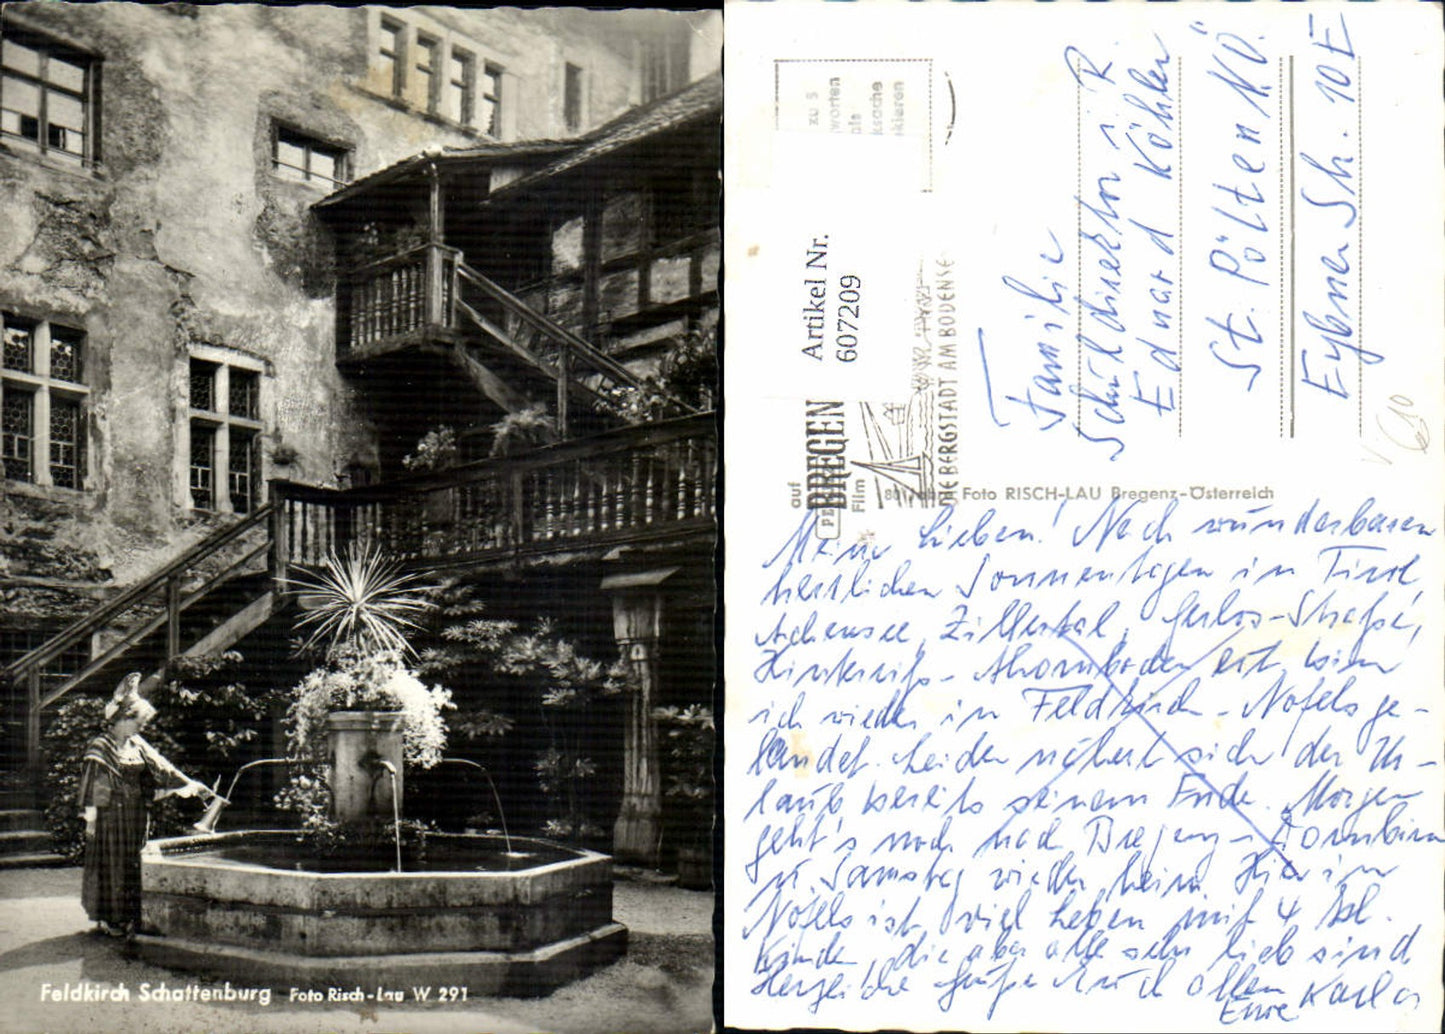 Feldkirch Schattenburg Foto Risch-Lau W 291
zu 5
worten
als
ksache
kieren
Artikel Nr.
607209
auf
BREGEN
Film
DIE BERGSTADT AM BODENSEE
Familie
Schuldirektor i. R.
Eduard Köhler
St. Pölten N.Ö.
Eybnerstr. 10 E
Foto RISCH-LAU Bregenz-Österreich
Meine Lieben! Nach wunderbaren
herrlichen Sonnentagen in Tirol,
Achensee, Zillertal, Gerlos-Straße,
Hintertux - Ahornboden etc. bin
ich wieder in Feldkirch - Nofels ge-
landet. Leider nähert sich der Ur-
laub bereits seinem Ende. Morgen
geht's noch nach Bregenz - Dornbirn
u. Samstag wieder heim. Hier in
Nofels ist viel Leben mit 4
Kinder, die aber alle sehr lieb sind
Herzliche Grüße Euch allen
Eure Karla